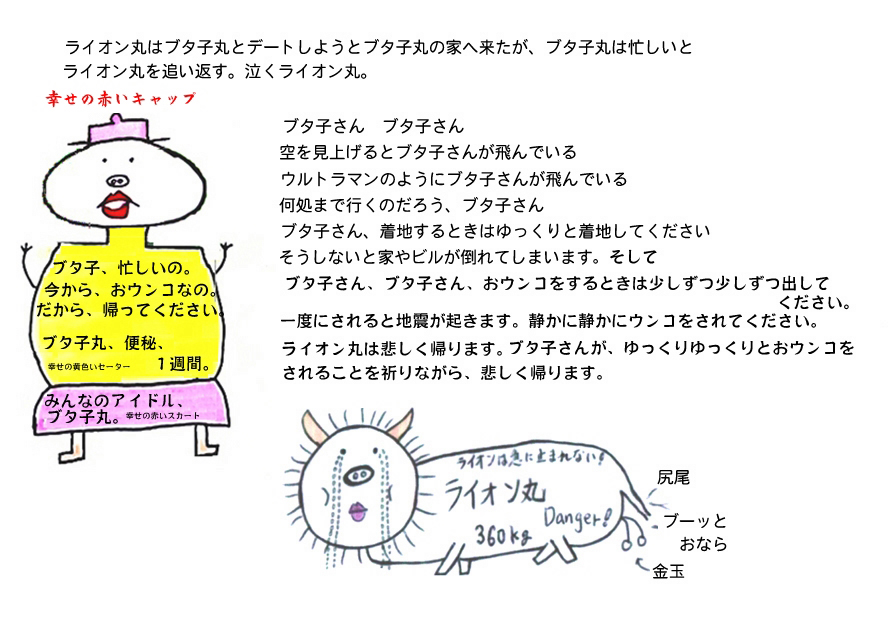 ライオン丸はブタ子丸とデートしようとブタ子丸の家へ来たが、ブタ子丸は忙しいと
ライオン丸を追い返す。泣くライオン丸。
幸せの赤いキャップ
ブタ子さん　ブタ子さん
空を見上げるとブタ子さんが飛んでいる
ウルトラマンのようにブタ子さんが飛んでいる
何処まで行くのだろう、ブタ子さん
ブタ子さん、着地するときはゆっくりと着地してください
そうしないと家やビルが倒れてしまいます。そして
ブタ子さん、ブタ子さん、おウンコをするときは少しずつ少しずつ出して
ください。
一度にされると地震が起きます。静かに静かにウンコをされてください。
ライオン丸は悲しく帰ります。ブタ子さんが、ゆっくりゆっくりとおウンコを
されることを祈りながら、悲しく帰ります。
ブタ子、忙しいの。
今から、おウンコなの。
だから、帰ってください。
ブタ子丸、便秘、
幸せの黄色いセーター　１週間。
みんなのアイドル、
ブタ子丸。幸せの赤いスカート
ライオンは急に止まれない！
ライオン丸
Danger!
360kg
尻尾
ブーッと
おなら
金玉